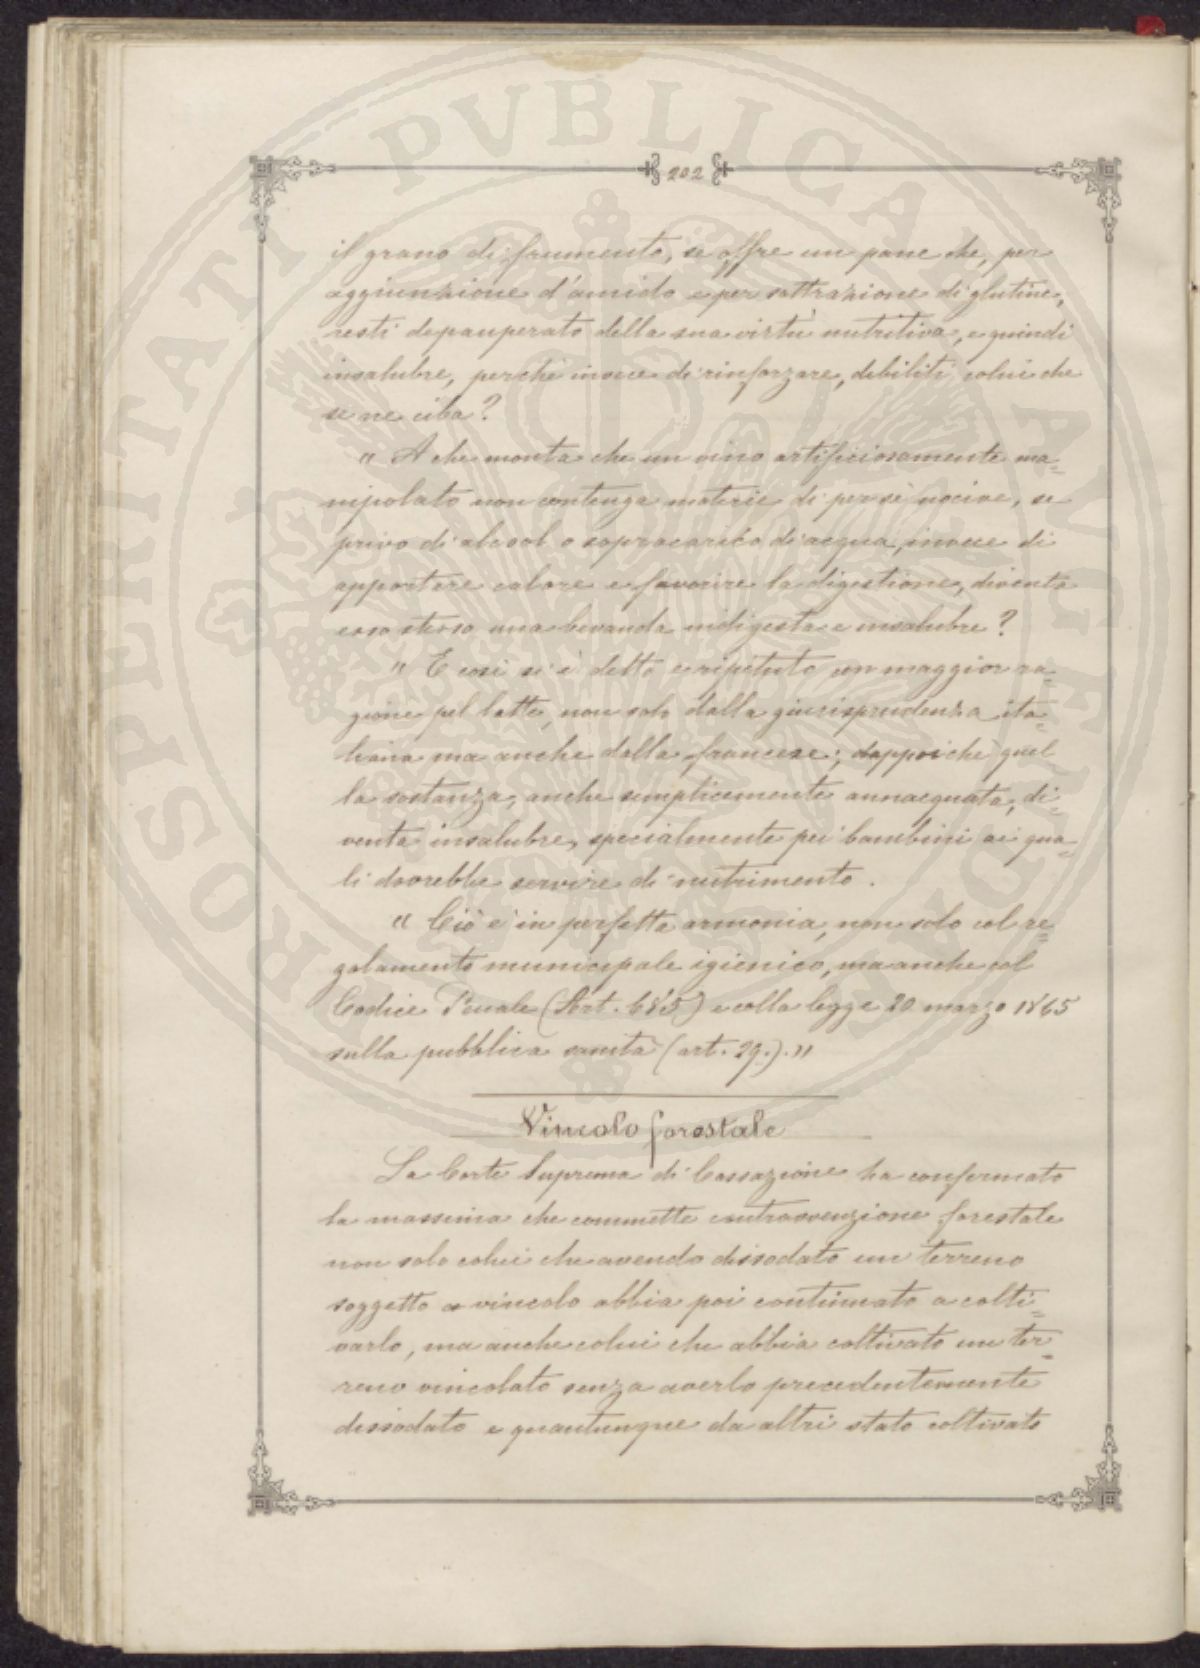 PROSPERITATI PVBLICAE AVGENDAE
202
il grano di frumento, se offre un pane che, per
aggiunzione d'amido e per sottrazione di glutine,
resti depauperato della sua virtù nutritiva, e quindi
insalubre, perchè invece di rinforzare, debiliti colui che
se ne ciba?
" A che monta che un vino artificiosamente ma=
nipolato non contenga materie di per sè nocive, se
privo di alcool o sopracarico di acqua, invece di
apportare calore e favorire la digestione, diventa
esso stesso una bevanda indigesta e insalubre?
" E così si è detto e ripetuto con maggior ra=
gione pel latte, non solo dalla giurisprudenza ita=
liana ma anche dalla francese; dappoichè quel
la sostanza, anche semplicemente annacquata, di=
venta insalubre, specialmente pei bambini ai qua=
li dovrebbe servire di nutrimento.
" Ciò è in perfetta armonia, non solo col re=
golamento municipale igienico, ma anche col
Codice Penale (Art. 685) e colla legge 20 marzo 1865
sulla pubblica sanità (art. 29.). "
Vincolo forestale
La Corte Suprema di Cassazione ha confermato
la massima che commette contravvenzione forestale
non solo colui che avendo dissodato un terreno
soggetto a vincolo abbia poi continuato a colti=
varlo, ma anche colui che abbia coltivato un ter=
reno vincolato senza averlo precedentemente
dissodato e quantunque da altri stato coltivato